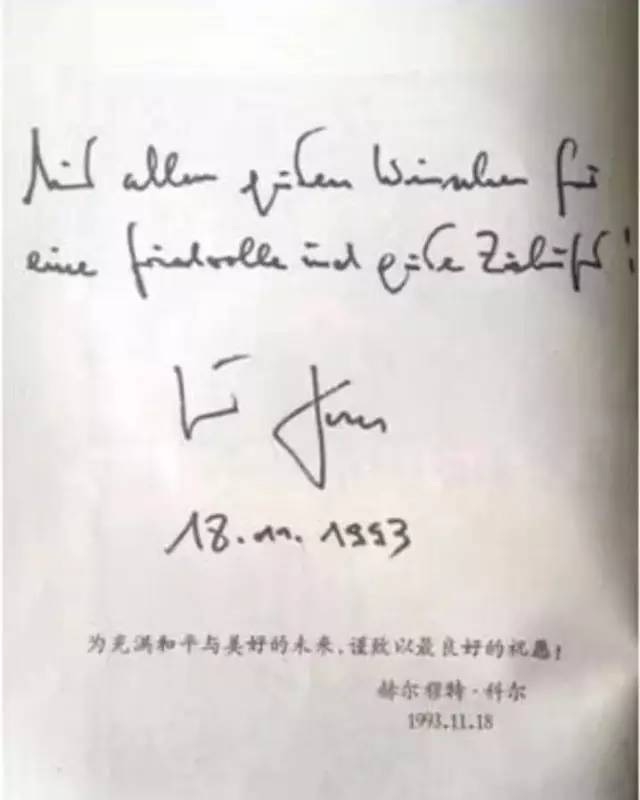 Mit allen guten Wünschen für
eine friedvolle und gute Zukunft!
18.11.1993
为充满和平与美好的未来,谨致以最良好的祝愿!
赫尔穆特·科尔
1993.11.18